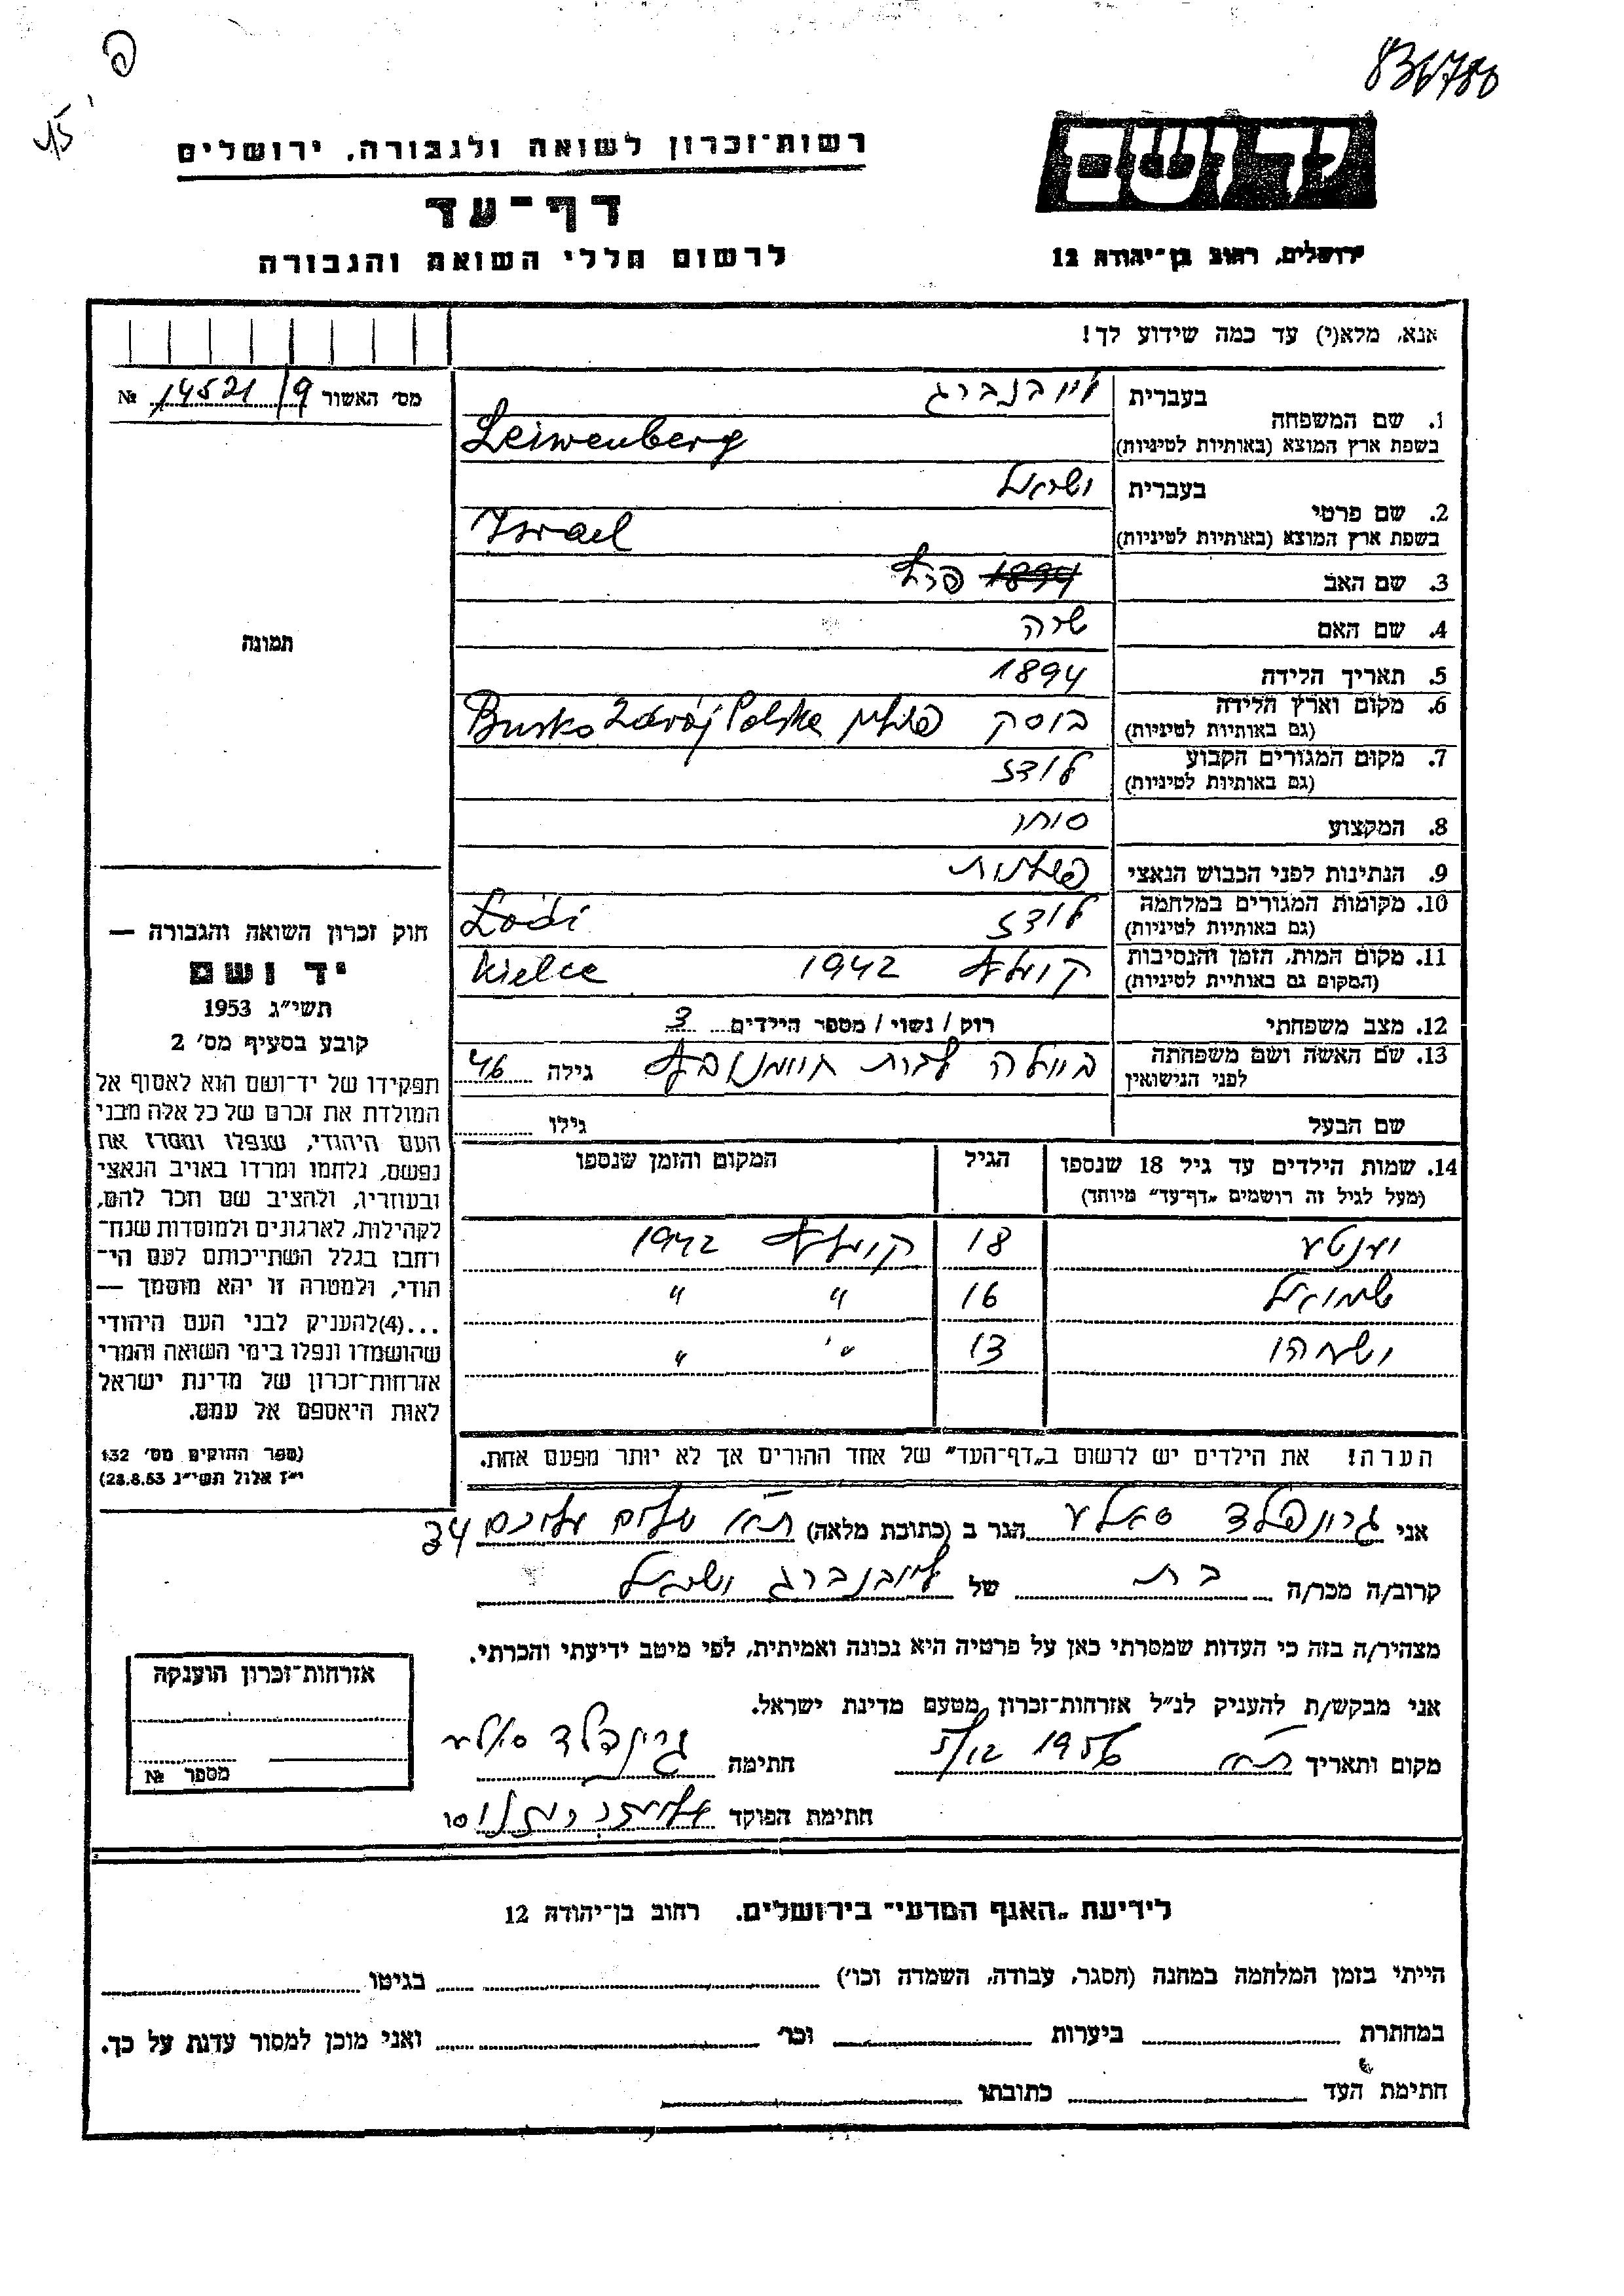 836780
פ
יד ושם
ירושלים, רחוב בן-יהודה 12
רשות-זכרון לשואה ולגבורה, ירושלים
דף-עד
לרשום חללי השואה והגבורה
אנא, מלא(י) עד כמה שידוע לך!
מס׳ האשור 14521/9 №
תמונה
1. שם המשפחה בעברית לייבנברג
בשפת ארץ המוצא (באותיות לטיניות) Leiwenberg
2. שם פרטי בעברית ישראל
בשפת ארץ המוצא (באותיות לטיניות) Israel
3. שם האב 1894 פרץ
4. שם האם שרה
5. תאריך הלידה 1894
6. מקום וארץ הלידה (גם באותיות לטיניות) בוסק פולין Busko Zdrój Polska
7. מקום המגורים הקבוע (גם באותיות לטיניות) לודז
8. המקצוע סוחר
9. הנתינות לפני הכבוש הנאצי פולנית
10. מקומות המגורים במלחמה (גם באותיות לטיניות) לודז Łódź
11. מקום המות, הזמן והנסיבות (המקום גם באותיות לטיניות) קיעלץ 1942 Kielce
12. מצב משפחתי רוק / נשוי / מספר הילדים 3
13. שם האשה ושם משפחתה לפני הנישואין ביילה לבית גילה 46
שם הבעל גילו
14. שמות הילדים עד גיל 18 שנספו (מעל לגיל זה רושמים „דף-עד״ מיוחד) הגיל המקום והזמן שנספו
יענטע 18 קיעלץ 1942
שמואל 16 ״ ״
ישעיהו 13 ״ ״
הערה! את הילדים יש לרשום ב„דף-העד״ של אחד ההורים אך לא יותר מפעם אחת.
חוק זכרון השואה והגבורה —
יד ושם
תשי״ג 1953
קובע בסעיף מס׳ 2
תפקידו של יד-ושם הוא לאסוף אל
המולדת את זכרם של כל אלה מבני
העם היהודי, שנפלו ומסרו את
נפשם, נלחמו ומרדו באויב הנאצי
ובעוזריו, ולהציב שם וזכר להם,
לקהילות, לארגונים ולמוסדות שנח-
רבו בגלל השתייכותם לעם הי-
הודי, ולמטרה זו יהא מוסמך —
...(4)להעניק לבני העם היהודי
שהושמדו ונפלו בימי השואה והמרי
אזרחות-זכרון של מדינת ישראל
לאות היאספם אל עמם.
(ספר החוקים מס׳ 132
י״ז אלול תשי״ג 28.8.53)
אני גרינפלד סאלע הגר ב (כתובת מלאה) ת״א שלום עליכם 34
קרוב/ה מכר/ה בת של לייבנברג ישראל
מצהיר/ה בזה כי העדות שמסרתי כאן על פרטיה היא נכונה ואמיתית, לפי מיטב ידיעתי והכרתי.
אני מבקש/ת להעניק לנ״ל אזרחות-זכרון מטעם מדינת ישראל.
מקום ותאריך ת״א 5/12 1956 חתימה גרינפלד סאלע
חתימת הפוקד
אזרחות-זכרון הוענקה
מספר №
לידיעת „האגף המדעי״ בירושלים, רחוב בן-יהודה 12
הייתי בזמן המלחמה במחנה (הסגר, עבודה, השמדה וכו׳) בגיטו
במחתרת ביערות וכו׳ ואני מוכן למסור עדות על כך.
חתימת העד כתובתו